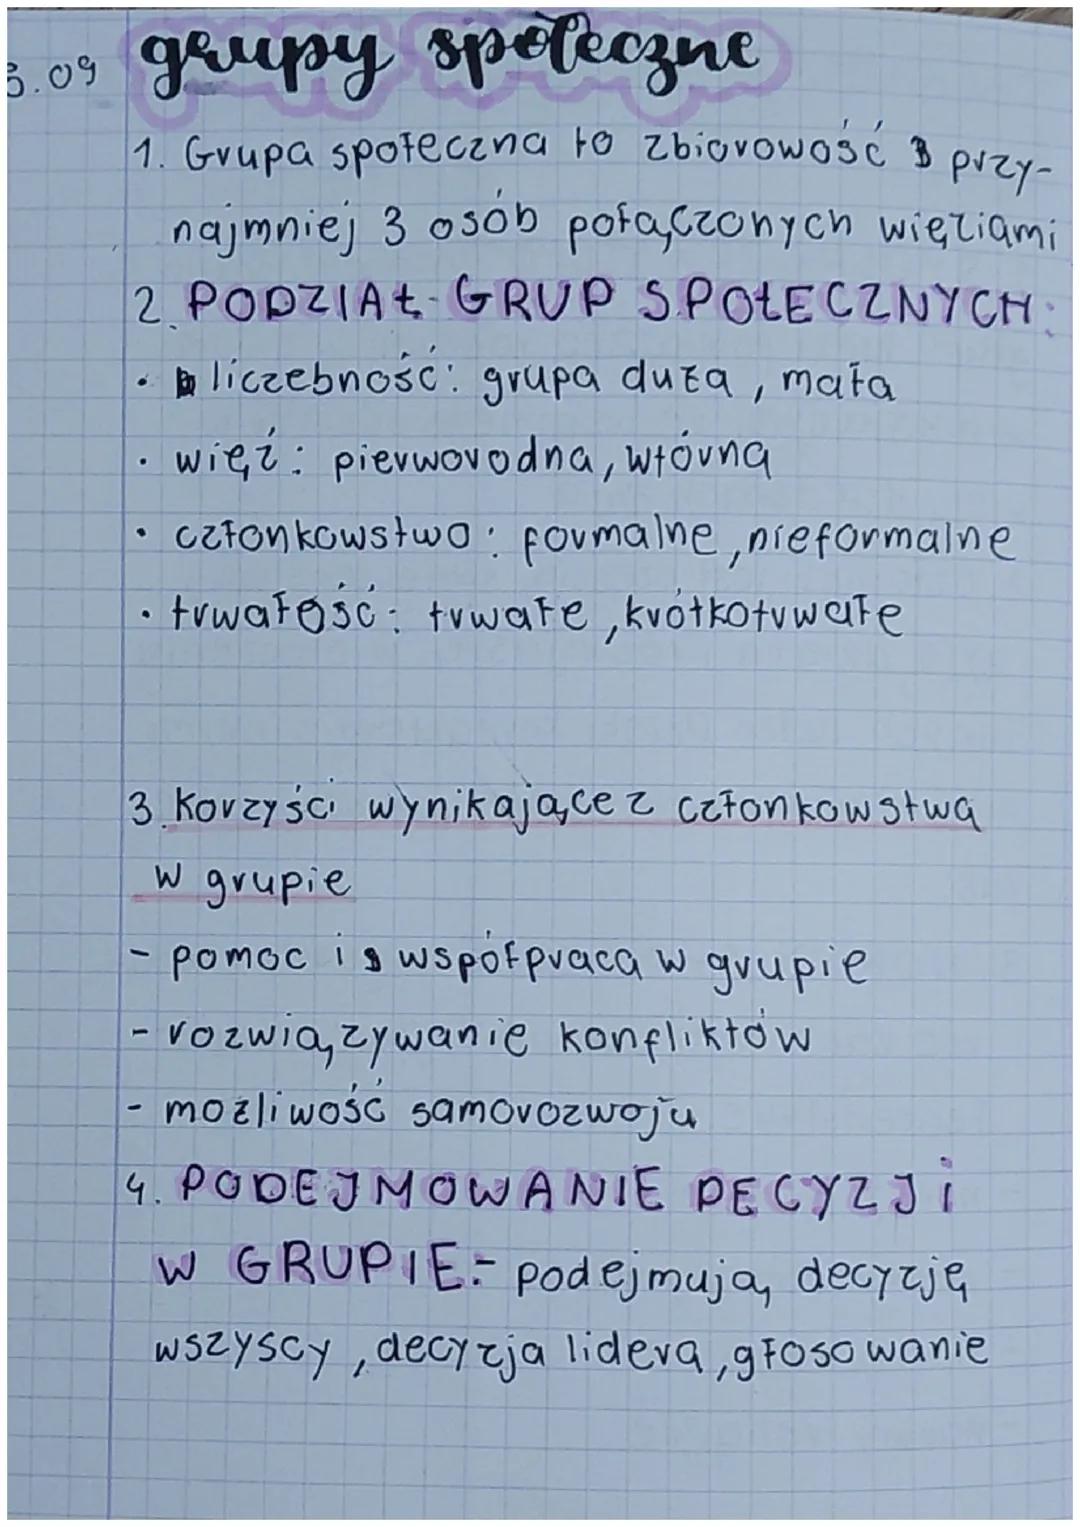 3.09 grupy społeczne
1. Grupa społeczna to zbiorowość przy-
najmniej 3 osób połączonych więziami
2. PODZIAŁ GRUP SPOŁECZNYCH:
• liczebność: grupa duża, mała
• więź: pierworodna, wtórna
• członkowstwo: formalne, nieformalne
• trwałość: trwałe, krótkotrwałe
3. Korzyści wynikające z członkowstwa
w grupie
- pomoc i współpraca w grupie
- rozwiązywanie konfliktów
- możliwość samorozwoju
4. PODEJMOWANIE DECYZJI
W GRUPIE:- podejmują decyzję
wszyscy, decyzja lidera, głosowanie